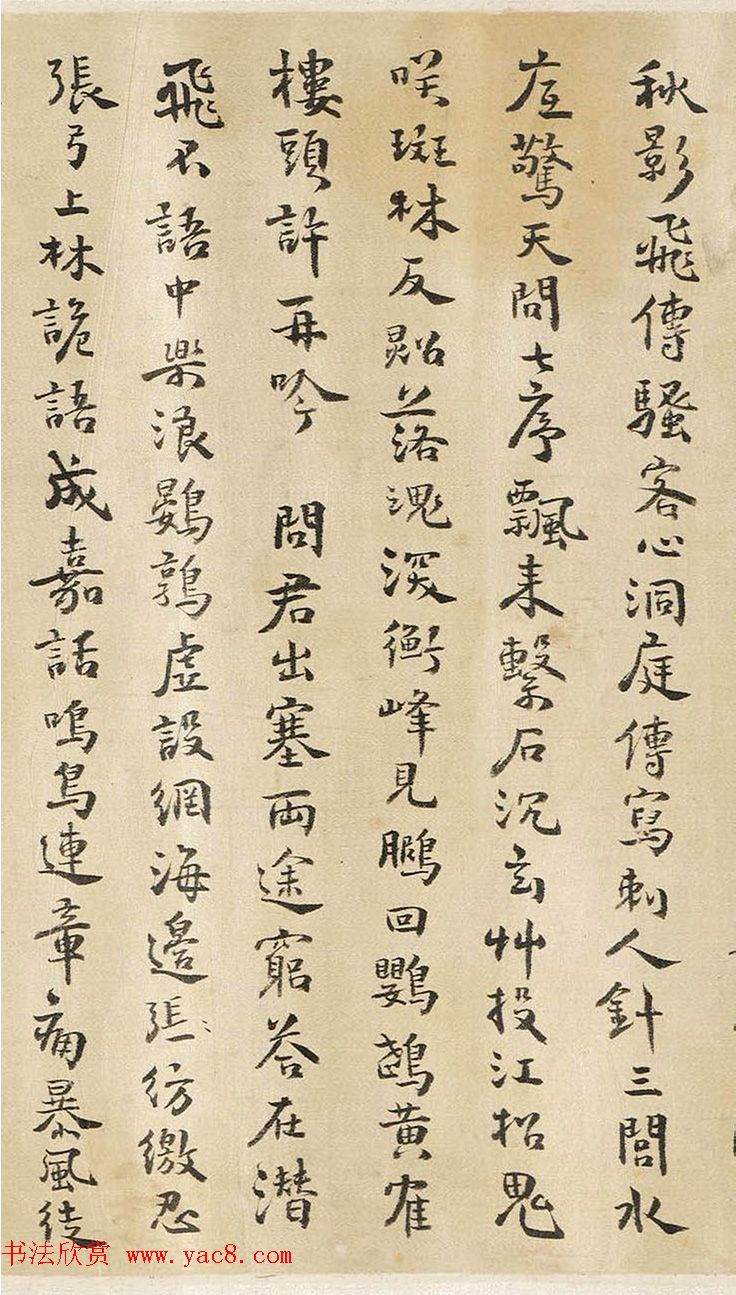 秋影飛傳騷客心洞庭傳寫刺人針三閭水
底驚天問七序飄来繫石沉玄艸投江招鬼
咲斑林反照落魂深衡峰見鵬回鸚鵡黄隺
樓頭許再吟 問君出塞两途窮荅在潛
飛不語中樂浪鷃鶉虛設網海邊張彷繳忍
張弓上林詭語成嘉話鳴鳥連章痛暴風徒
书法欣赏 www.yac8.com